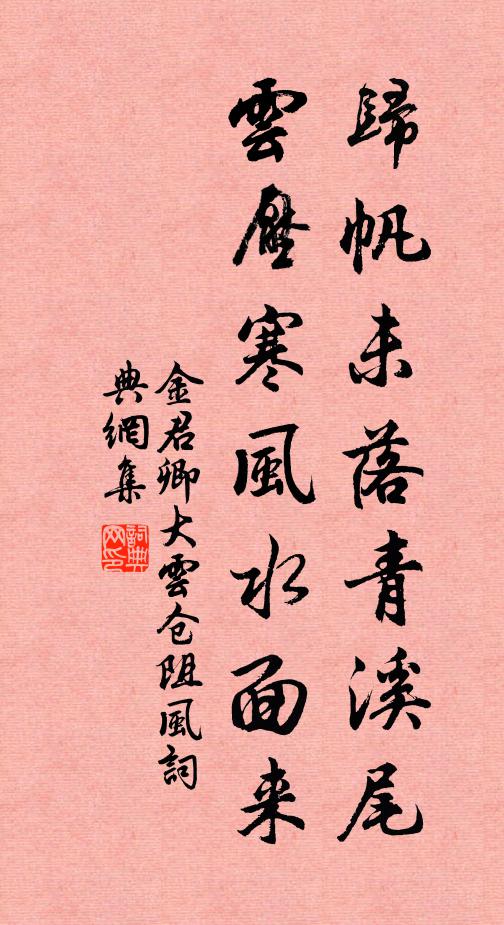 歸帆未落青溪尾
雲壓寒風水面来
金君卿大雲仓阻風詞
典網集
詞典
网印